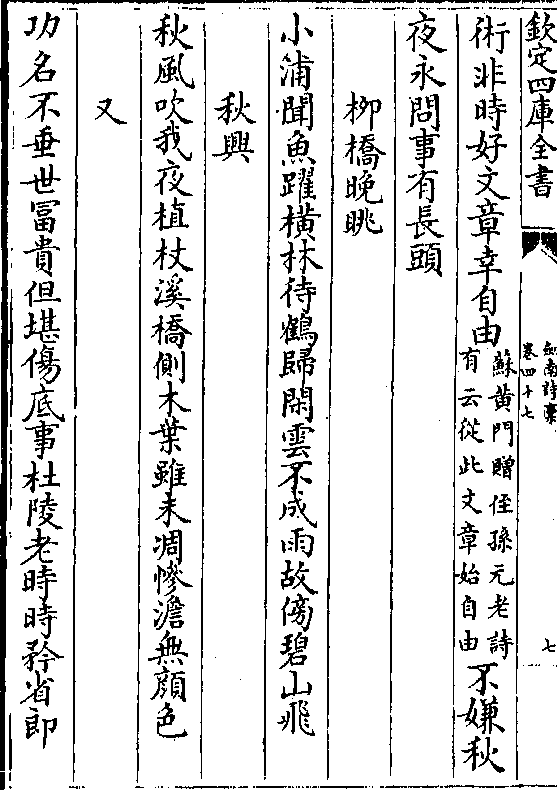 欽定四庫全書
劍南詩稾
卷四十七
七
術非時好文章幸自由蘇黄門贈侄孫元老詩
有云從此文章始自由不嫌秋
夜永問事有長頭
柳橋晚眺
小浦聞魚躍橫林待鶴歸閑雲不成雨故傍碧山飛
秋興
秋風吹我夜植杖溪橋側木葉雖未凋慘澹無顔色
又
功名不垂世冨貴但堪傷底事杜陵老時時矜省郎